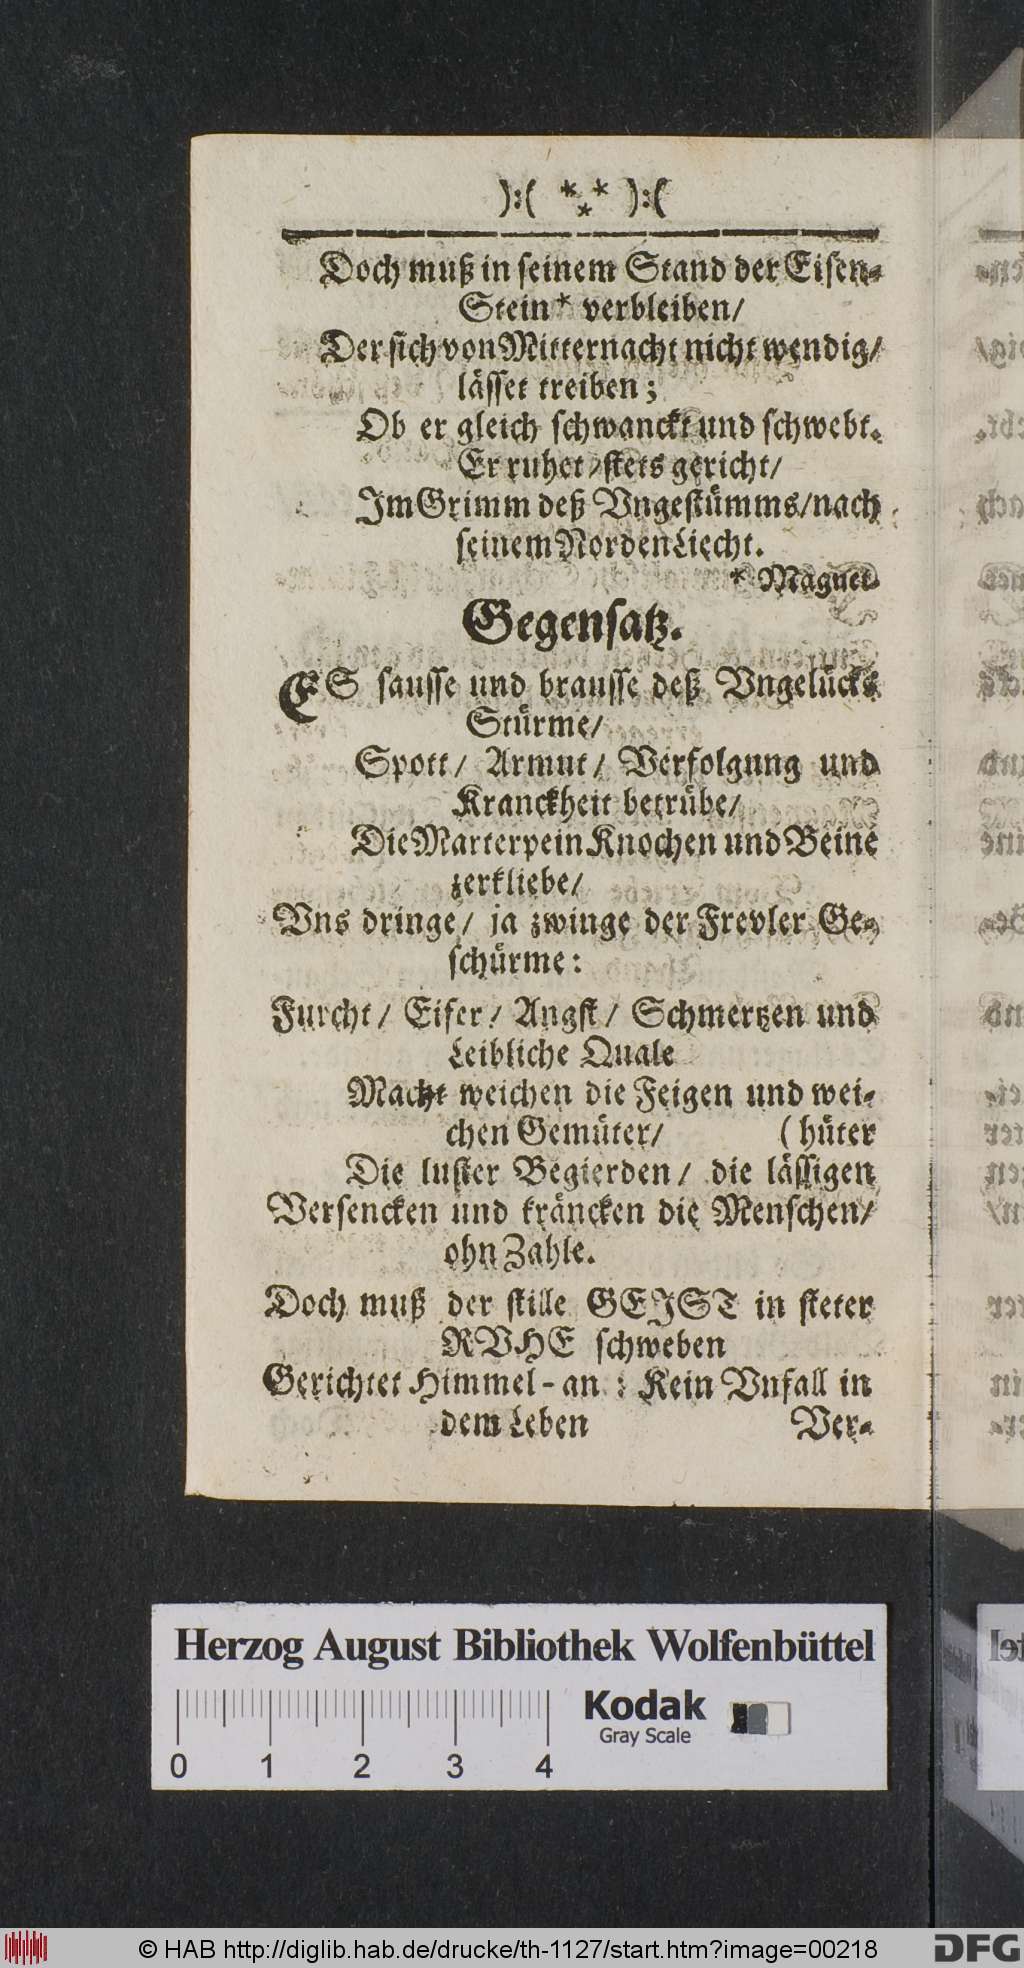 ):( *** ):(
Doch muß in seinem Stand der Eisen-
Stein* verbleiben/
Der sich von Mitternacht nicht wendig/
lässet treiben;
Ob er gleich schwanckt und schwebt.
Er ruhet/stets gericht/
Im Grimm deß Vngestümms/nach
seinem Norden Liecht.
* Magnet
Gegensatz.
ES sausse und brausse deß Vngelücks
Stürme/
Spott/ Armut/ Verfolgung und
Kranckheit betrübe/
Die Marterpein Knochen und Beine
zerkliebe/
Vns dringe/ ja zwinge der Frevler Ge-
schürme:
Furcht/ Eifer/ Angst/ Schmertzen und
Leibliche Quale
Macht weichen die Feigen und wei-
chen Gemüter/ (hüter
Die luster Begierden/ die lässigen
Versencken und kräncken die Menschen/
ohn Zahle.
Doch muß der stille GEIST in steter
RVHE schweben
Gerichtet Himmel-an: Kein Vnfall in
dem Leben Ver-
Herzog August Bibliothek Wolfenbüttel
Kodak
Gray Scale
0 1 2 3 4
© HAB http://diglib.hab.de/drucke/th-1127/start.htm?image=00218
DFG